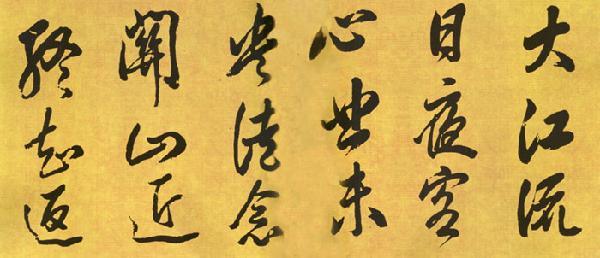 大江流
日夜客
心悲未
央徒念
關山近
終知返